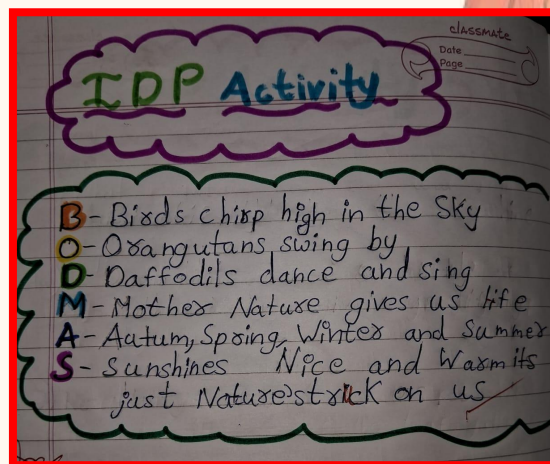 classmate
Date
Page
IDP Activity
B - Birds chirp high in the Sky
O - Orangutans swing by
D - Daffodils dance and sing
M - Mother Nature gives us life
A - Autum, Spring, Winter and Summer
S - Sunshines Nice and Warm its
just Nature's trick on us